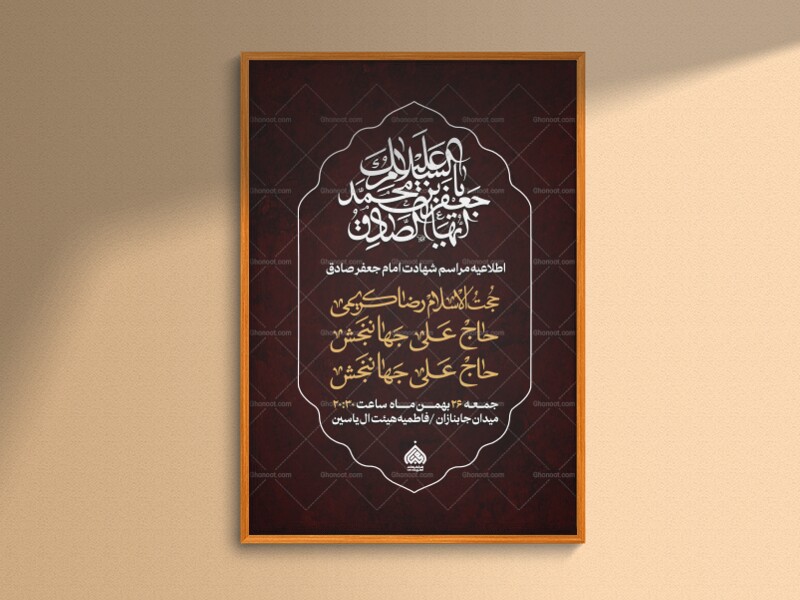 السلام علیک
یا جعفر بن محمد
ایها الصادق
اطلاعیه مراسم شهادت امام جعفر صادق
حجت الاسلام رضا کریمی
حاج علی جهانبخش
حاج علی جهانبخش
جمعه ۲۶ بهمن ماه ساعت ۲۰:۳۰
میدان جابنازان / فاطمیه هیئت ال یاسین
Ghonoot.com